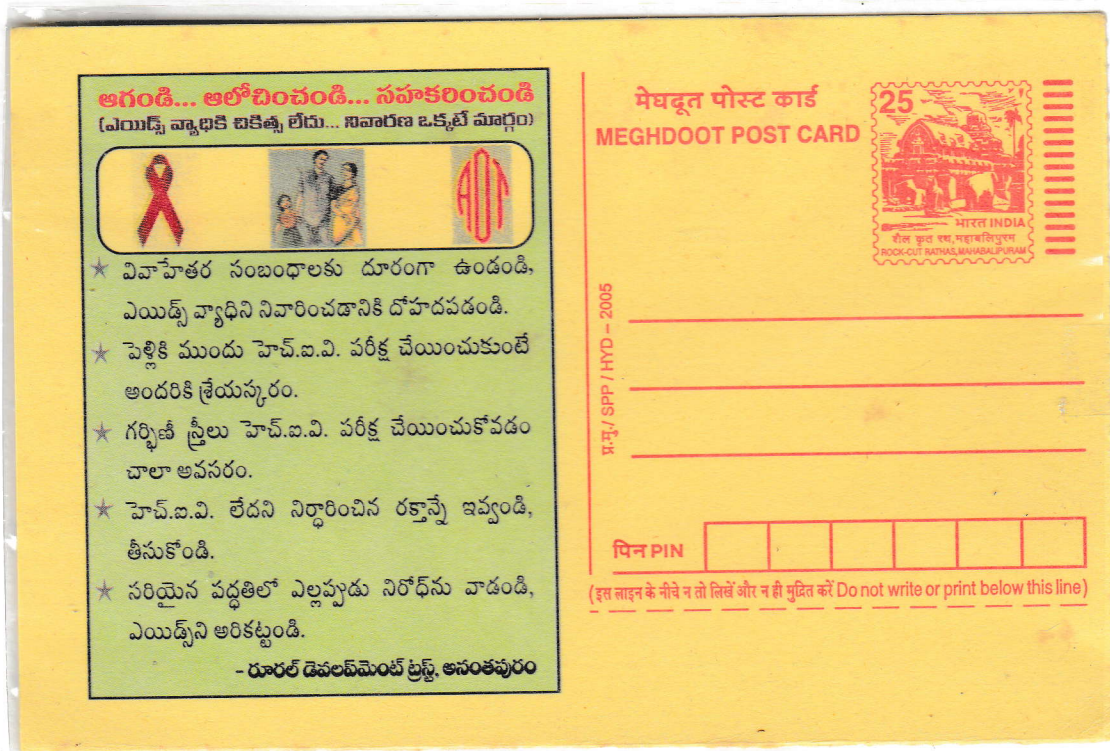 ఆగండి... ఆలోచించండి... సహకరించండి
(ఎయిడ్స్ వ్యాధికి చికిత్స లేదు... నివారణ ఒక్కటే మార్గం)
వివాహేతర సంబంధాలకు దూరంగా ఉండండి,
ఎయిడ్స్ వ్యాధిని నివారించడానికి దోహదపడండి.
పెళ్లికి ముందు హెచ్.ఐ.వి. పరీక్ష చేయించుకుంటే
అందరికి శ్రేయస్కరం.
గర్భిణీ స్త్రీలు హెచ్.ఐ.వి. పరీక్ష చేయించుకోవడం
చాలా అవసరం.
హెచ్.ఐ.వి. లేదని నిర్ధారించిన రక్తాన్నే ఇవ్వండి,
తీసుకోండి.
సరియైన పద్ధతిలో ఎల్లప్పుడు నిరోధ్‌ను వాడండి,
ఎయిడ్స్‌ని అరికట్టండి.
- రూరల్ డెవలప్‌మెంట్ ట్రస్ట్, అనంతపురం
मेघदूत पोस्ट कार्ड
MEGHDOOT POST CARD
25
भारत INDIA
शैल कृत रथ, महाबलिपुरम
ROCK-CUT RATHAS, MAHABALIPURAM
प्र.मु./ SPP / HYD – 2005
पिन PIN
(इस लाइन के नीचे न तो लिखें और न ही मुद्रित करें Do not write or print below this line)